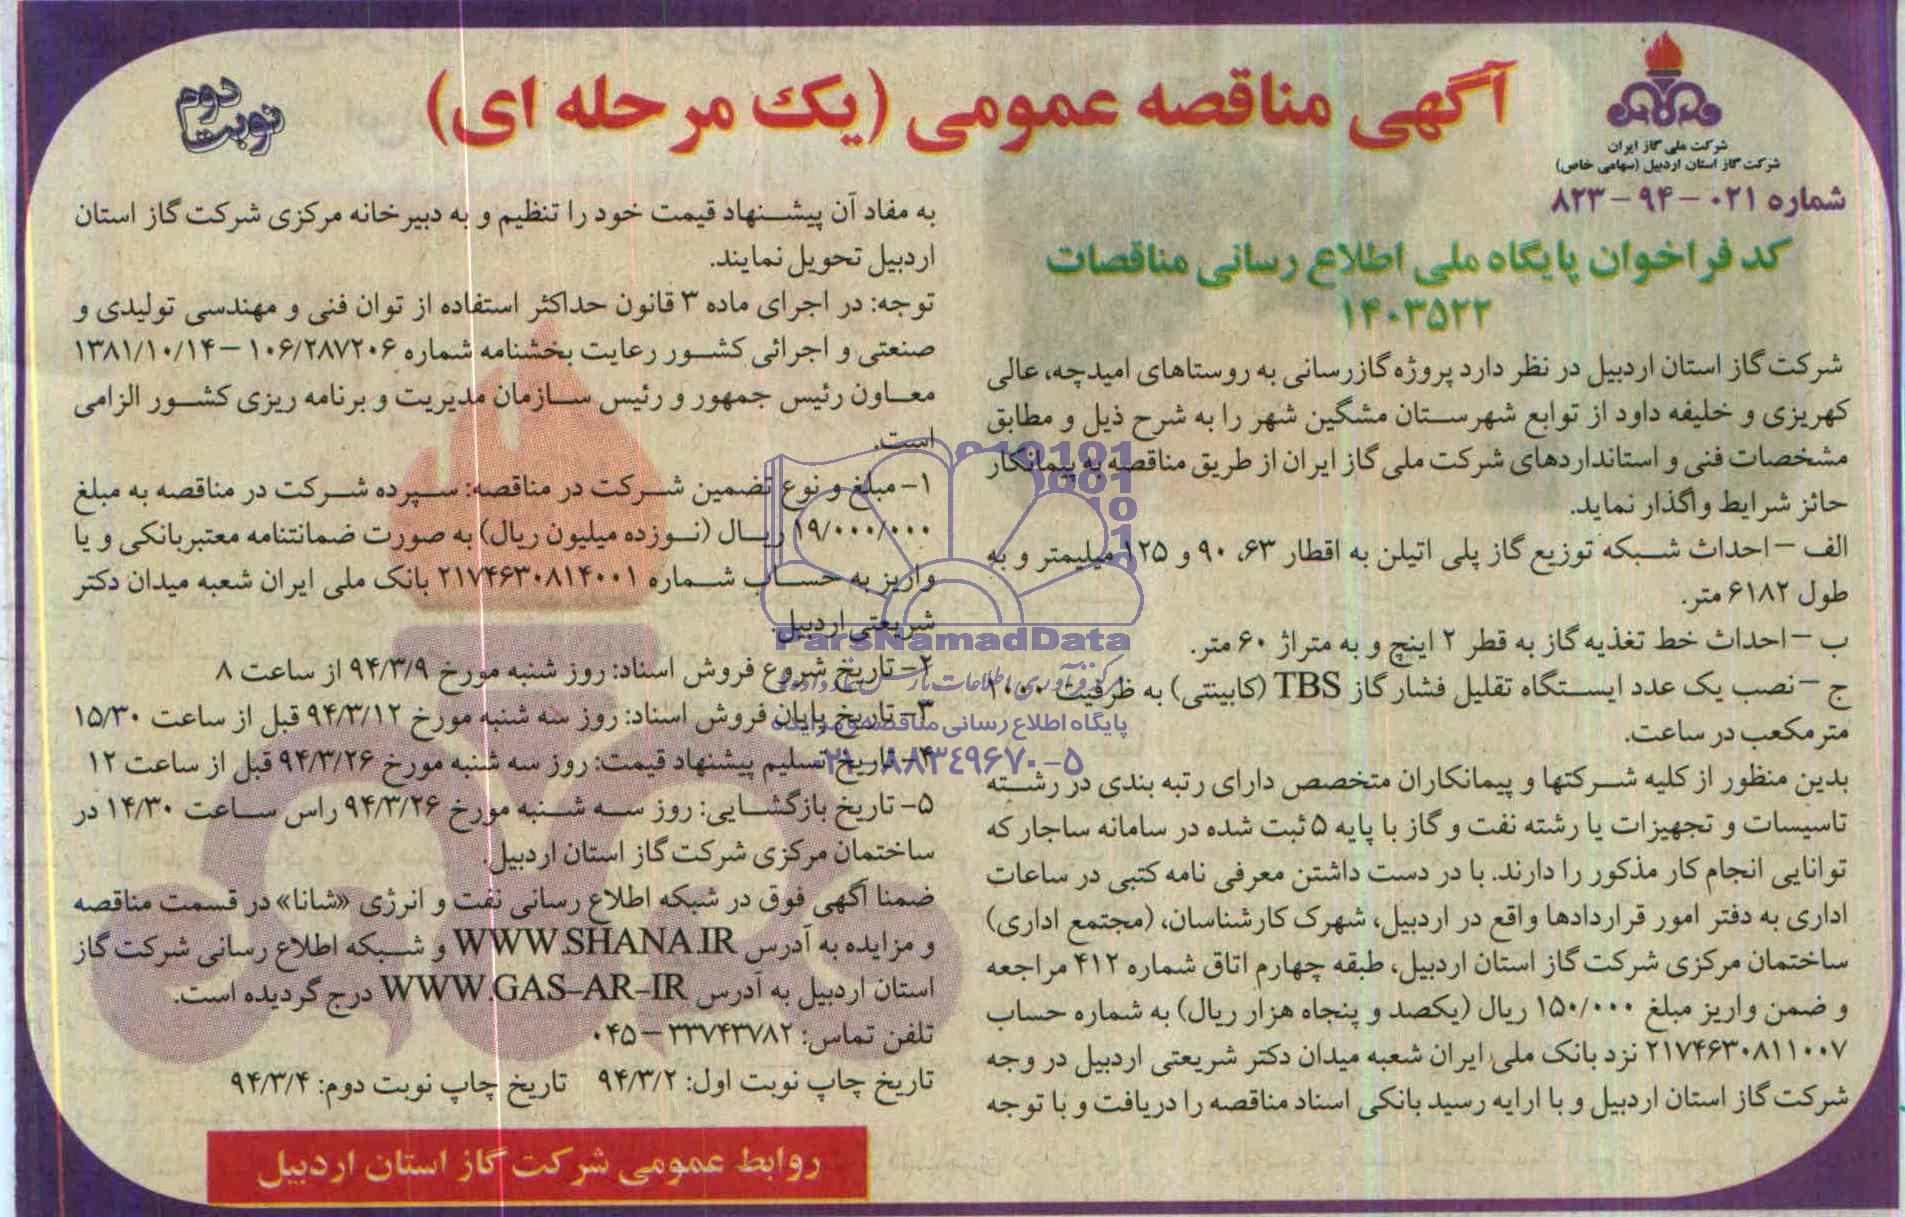 آگهی مناقصه عمومی (یک مرحله ای)
نوبت دوم
شرکت ملی گاز ایران
شرکت گاز استان اردبیل (سهامی خاص)
شماره ۰۲۱ - ۹۴ - ۸۲۳
کد فراخوان پایگاه ملی اطلاع رسانی مناقصات
۱۴۰۳۵۲۲
شرکت گاز استان اردبیل در نظر دارد پروژه گازرسانی به روستاهای امیدچه، عالی
کهریزی و خلیفه داود از توابع شهرستان مشگین شهر را به شرح ذیل و مطابق
مشخصات فنی و استانداردهای شرکت ملی گاز ایران از طریق مناقصه به پیمانکار
حائز شرایط واگذار نماید.
الف - احداث شبکه توزیع گاز پلی اتیلن به اقطار ۶۳، ۹۰ و ۱۲۵ میلیمتر و به
طول ۶۱۸۲ متر.
ب - احداث خط تغذیه گاز به قطر ۲ اینچ و به متراژ ۶۰ متر.
ج - نصب یک عدد ایستگاه تقلیل فشار گاز TBS (کابینتی) به ظرفیت
مترمکعب در ساعت.
بدین منظور از کلیه شرکتها و پیمانکاران متخصص دارای رتبه بندی در رشته
تاسیسات و تجهیزات یا رشته نفت و گاز با پایه ۵ ثبت شده در سامانه ساجار که
توانایی انجام کار مذکور را دارند. با در دست داشتن معرفی نامه کتبی در ساعات
اداری به دفتر امور قراردادها واقع در اردبیل، شهرک کارشناسان، (مجتمع اداری)
ساختمان مرکزی شرکت گاز استان اردبیل، طبقه چهارم اتاق شماره ۴۱۲ مراجعه
و ضمن واریز مبلغ ۱۵۰/۰۰۰ ریال (یکصد و پنجاه هزار ریال) به شماره حساب
۲۱۷۴۶۳۰۸۱۱۰۰۷ نزد بانک ملی ایران شعبه میدان دکتر شریعتی اردبیل در وجه
شرکت گاز استان اردبیل و با ارایه رسید بانکی اسناد مناقصه را دریافت و با توجه
به مفاد آن پیشنهاد قیمت خود را تنظیم و به دبیرخانه مرکزی شرکت گاز استان
اردبیل تحویل نمایند.
توجه: در اجرای ماده ۳ قانون حداکثر استفاده از توان فنی و مهندسی تولیدی و
صنعتی و اجرائی کشور رعایت بخشنامه شماره ۱۰۶/۲۸۷۲۰۶ - ۱۳۸۱/۱۰/۱۴
معاون رئیس جمهور و رئیس سازمان مدیریت و برنامه ریزی کشور الزامی
است.
۱- مبلغ و نوع تضمین شرکت در مناقصه: سپرده شرکت در مناقصه به مبلغ
۱۹/۰۰۰/۰۰۰ ریال (نوزده میلیون ریال) به صورت ضمانتنامه معتبربانکی و یا
واریز به حساب شماره ۲۱۷۴۶۳۰۸۱۴۰۰۱ بانک ملی ایران شعبه میدان دکتر
شریعتی اردبیل.
۲- تاریخ شروع فروش اسناد: روز شنبه مورخ ۹۴/۳/۹ از ساعت ۸
۳- تاریخ پایان فروش اسناد: روز سه شنبه مورخ ۹۴/۳/۱۲ قبل از ساعت ۱۵/۳۰
۴- تاریخ تسلیم پیشنهاد قیمت: روز سه شنبه مورخ ۹۴/۳/۲۶ قبل از ساعت ۱۲
۵- تاریخ بازگشایی: روز سه شنبه مورخ ۹۴/۳/۲۶ راس ساعت ۱۴/۳۰ در
ساختمان مرکزی شرکت گاز استان اردبیل.
ضمنا آگهی فوق در شبکه اطلاع رسانی نفت و انرژی «شانا» در قسمت مناقصه
و مزایده به آدرس WWW.SHANA.IR و شبکه اطلاع رسانی شرکت گاز
استان اردبیل به آدرس WWW.GAS-AR-IR درج گردیده است.
تلفن تماس: ۳۳۷۴۳۷۸۲ - ۰۴۵
تاریخ چاپ نوبت اول: ۹۴/۳/۲ تاریخ چاپ نوبت دوم: ۹۴/۳/۴
روابط عمومی شرکت گاز استان اردبیل
ParsNamadData
پایگاه اطلاع رسانی مناقصه و مزایده
۰۲۱-۸۸۳۴۹۶۷۰-۵